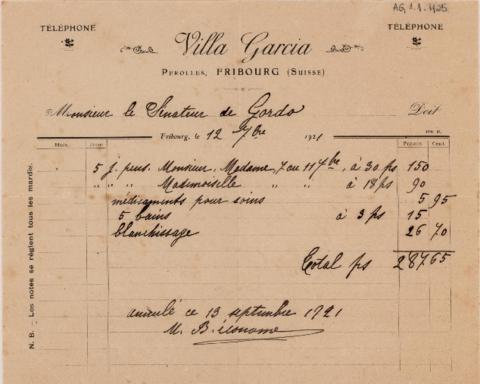 AG 1.1.1425
TÉLÉPHONE
TÉLÉPHONE
Villa Garcia
PEROLLES, FRIBOURG (SUISSE)
Monsieur le Sénateur de Gordo Doit
Fribourg, le 12 7bre 1921
Mois. Jours Francs Cent.
5 j. pens. Monsieur, Madame, 7 au 11 7bre, à 30 ps 150
" " " Mademoiselle " " à 18 ps 90
médicaments pour soins 5 95
5 bains à 3 ps 15
blanchissage 26 70
Total ps 287 65
N. B. – Les notes se règlent tous les mardis.
ce 13 septembre 1921
M. B. économe